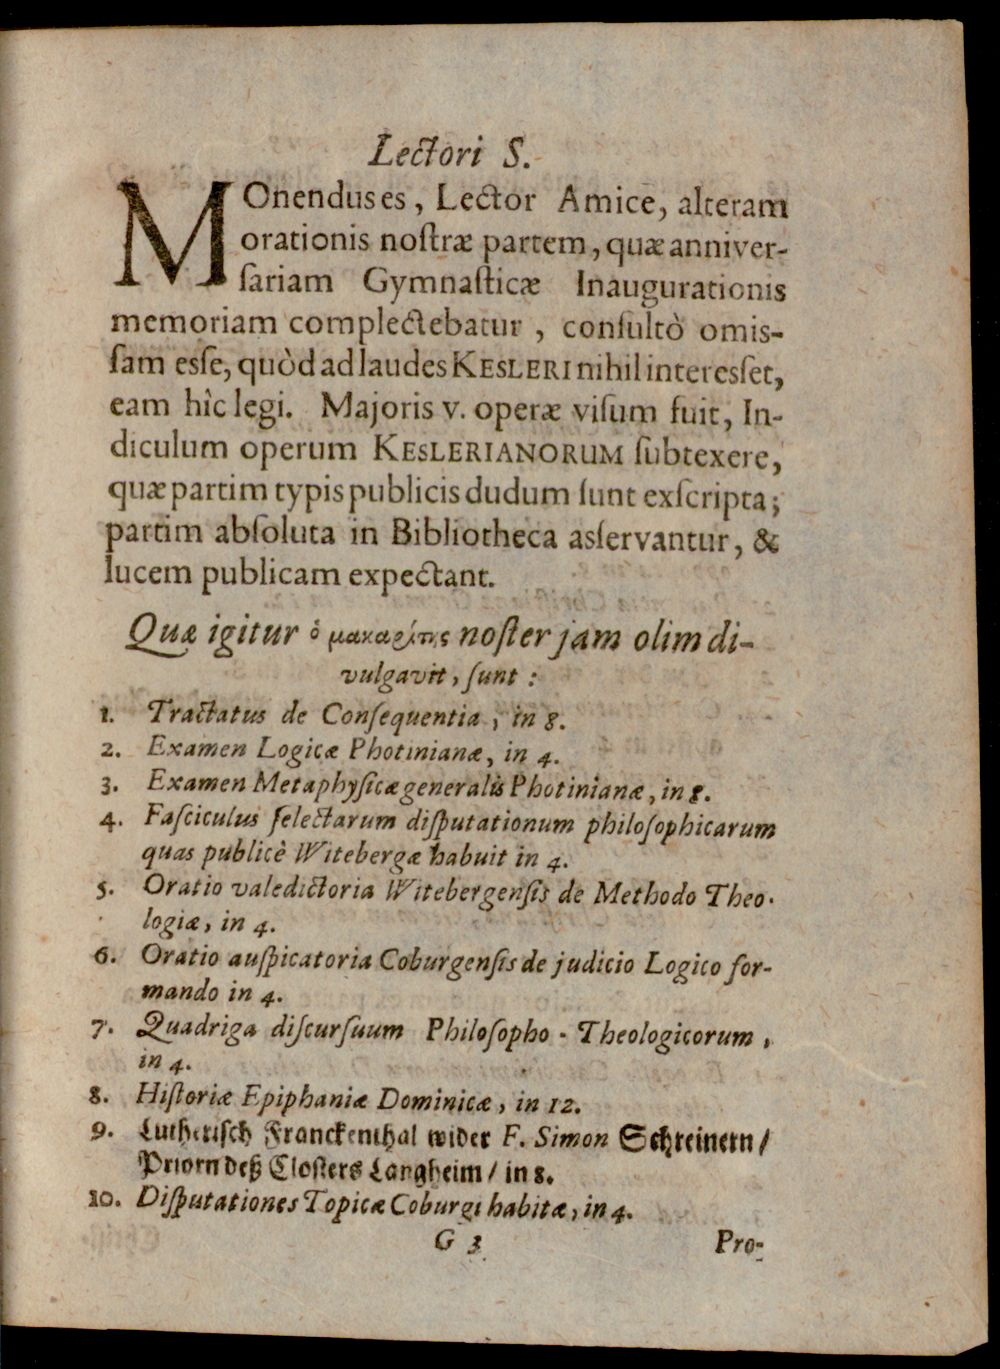 Lectori S.
MOnendus es, Lector Amice, alteram
orationis noſtræ partem, quæ anniver-
ſariam Gymnaſticæ Inaugurationis
memoriam complectebatur, conſultò omis-
ſam esſe, quòd ad laudes KESLERI nihil interesſet,
eam hîc legi. Majoris v. operæ viſum fuit, In-
diculum operum KESLERIANORUM ſubtexere,
quæ partim typis publicis dudum ſunt exſcripta;
partim abſoluta in Bibliotheca asſervantur, &
lucem publicam expectant.
Quæ igitur ὁ μακαρίτης noſter jam olim di-
vulgavit, ſunt:
1. Tractatus de Conſequentia, in 8.
2. Examen Logicæ Photinianæ, in 4.
3. Examen Metaphyſicæ generalis Photinianæ, in 8.
4. Faſciculus ſelectarum diſputationum philoſophicarum
quas publicè Witebergæ habuit in 4.
5. Oratio valedictoria Witebergenſis de Methodo Theo-
logiæ, in 4.
6. Oratio auſpicatoria Coburgenſis de judicio Logico for-
mando in 4.
7. Quadriga diſcurſuum Philoſopho-Theologicorum,
in 4.
8. Hiſtoriæ Epiphaniæ Dominicæ, in 12.
9. Lutheriſch Franckenthal wider F. Simon Schreinern/
Priorn deß Cloſters Langheim/ in 8.
10. Diſputationes Topicæ Coburgi habitæ, in 4.
G 3
Pro-